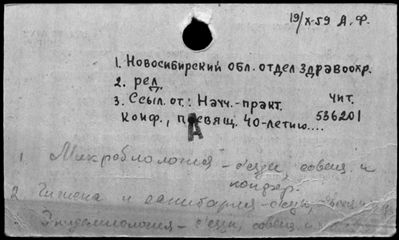 19/X-59 А.Ф.
1. Новосибирский обл. отдел здравоохр.
2. ред.
3. Ссыл. от.: Научн.-практ. чит.
Конф., посвящ. 40-летию.... 536201
А
1. Микробиология - съезды, совещ. и
конфер.
2. Гигиена и санитария - съезды,
Эпидемиология - съезды, совещ. и